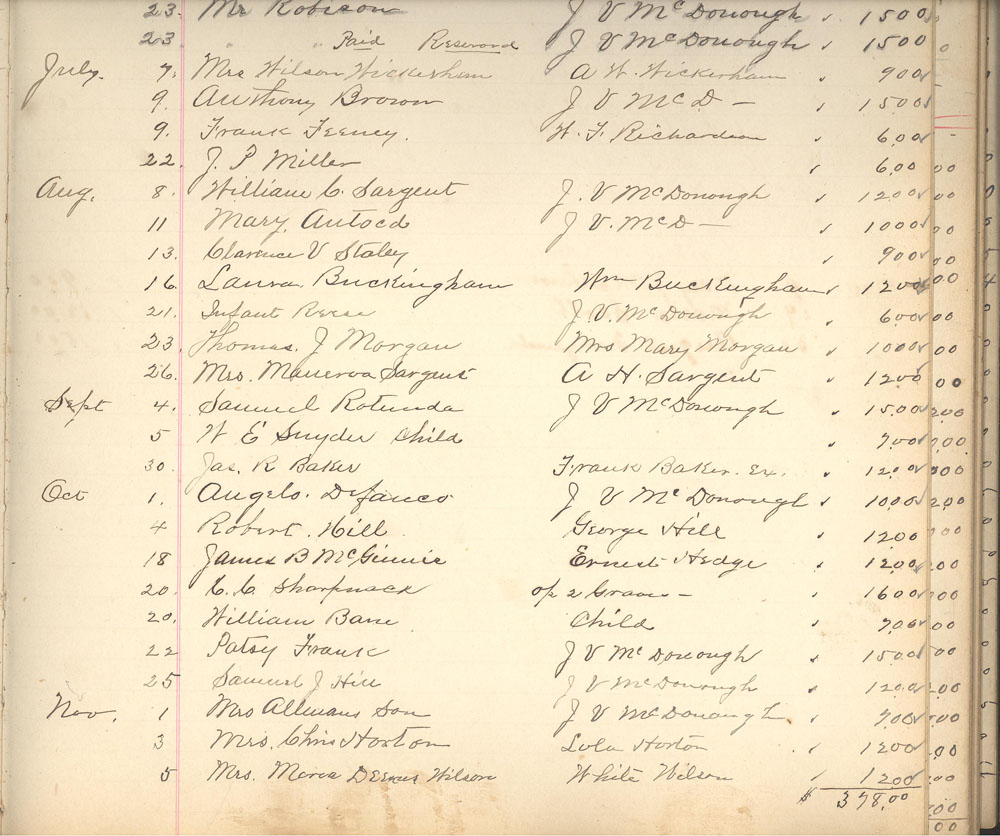 23. Mr Robison J V McDonough 1500
23 " " Paid Reserved J V McDonough 1500
July. 7. Mrs Wilson Wickersham A W. Wickerham 900
9. Anthony Brown J V McD — 1500
9. Frank Feeney. W. F. Richardson 600
22. J. P Miller 6.00
Aug. 8. William C. Sargent J. V McDonough 1200
11 Mary Autocd J V. McD — 1000
13. Clarence V Staley 900
16. Laura. Buckingham Wm Buckingham 1200
21. Infant Reese J. V. McDonough 600
23. Thomas. J Morgan Mrs Mary Morgan 1000
26. Mrs. Manerva Sargent A H. Sargent 1200
Sept 4. Samuel Rotunda J V McDonough 15.00
5 W E Snyder Child 7.00
30. Jas. R Baker Frank Baker. Ex. 1200
Oct 1. Angelo. Defanco J V McDonough 10.00
4 Robert. Hill George Hill 1200
18 James B McGinnis Ernest Hedge 12.00
20. C. C Sharpnack op 2 Graves — 1600
20. William Bane Child 7.00
22 Patsy Frank J V McDonough 15.00
25 Samuel J Hill J V McDonough 12.00
Nov. 1 Mrs Allmans Son J V McDonough 7.00
3 Mrs. Chris Horton Lola Horton 1200
5 Mrs. Maria Deemes Wilson White Wilson 12.00
$ 378.00